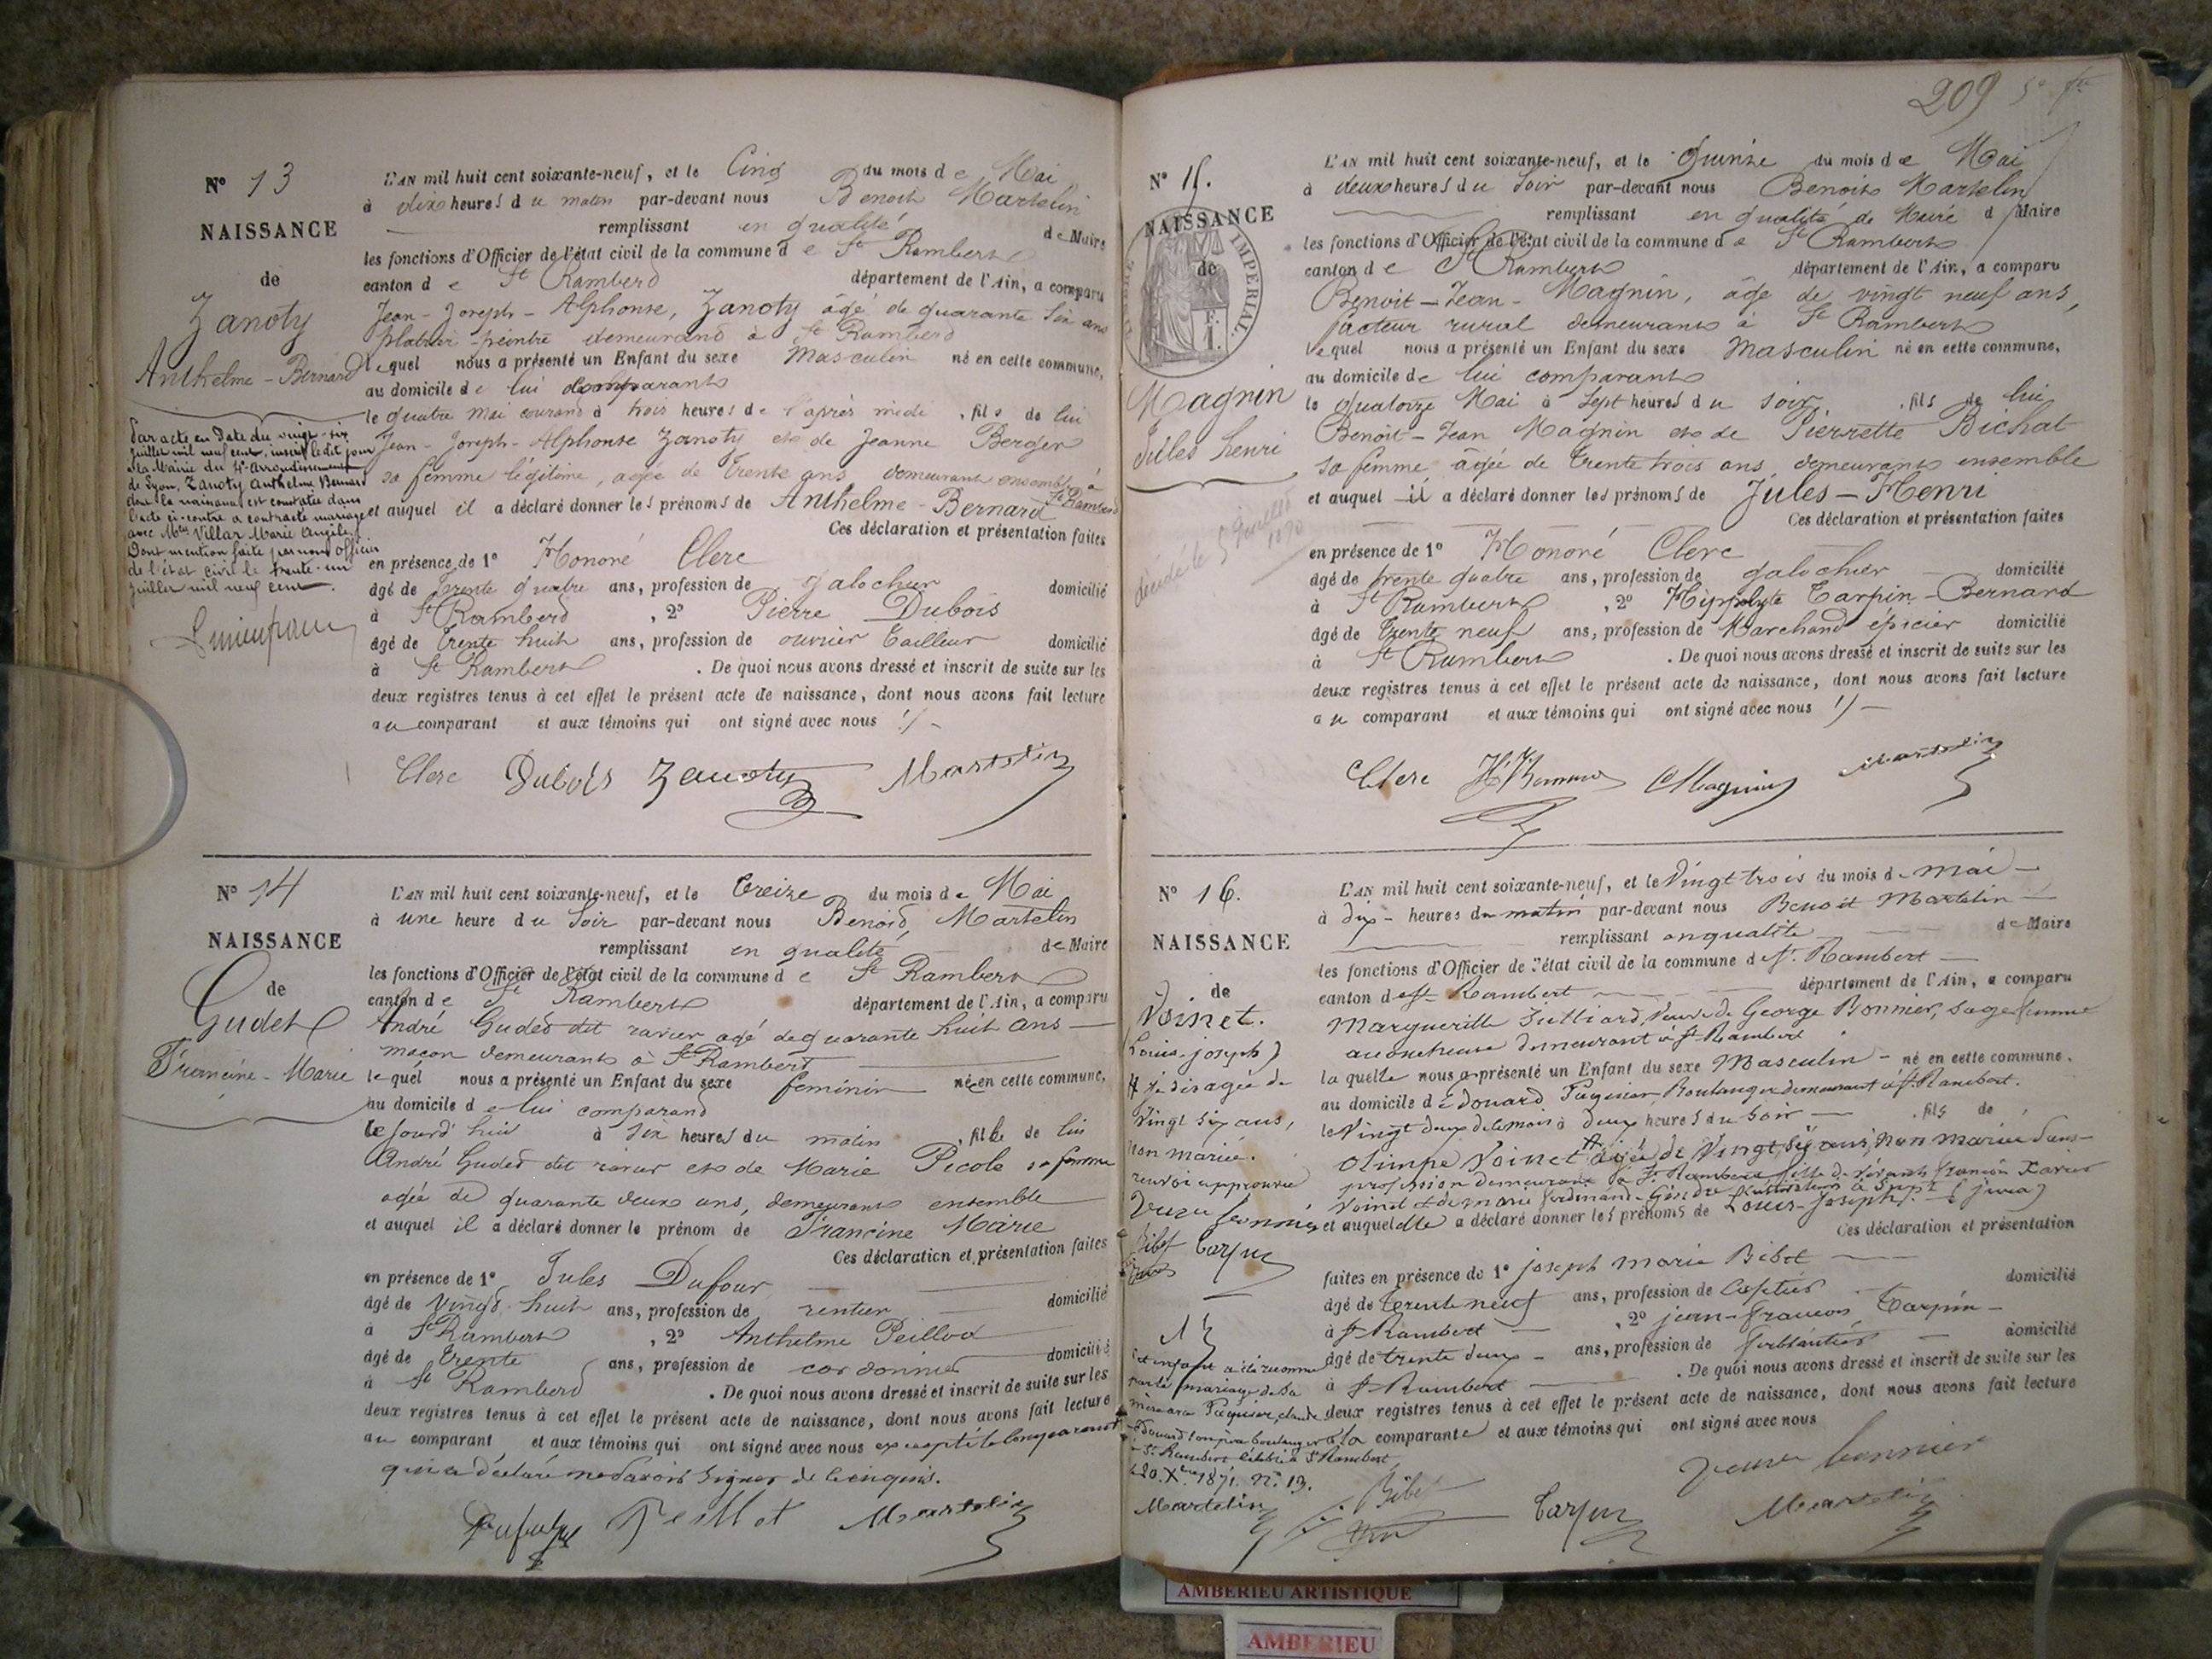 N° 13
NAISSANCE
de
Zanoty
Anthelme-Bernard
Par acte en date du vingt-six
juillet mil neuf cent, inscrit le dit jour
à la Mairie du 4e Arrondissement
de Lyon, Zanoty Anthelme Bernard
dont la naissance est constatée dans
l'acte ci-contre a contracté mariage
avec Melle Villar Marie Angèle
Dont mention faite par nous officier
de l'état civil le trente-un
juillet mil neuf cent.
L'AN mil huit cent soixante-neuf, et le Cinq du mois de Mai
à dix heures du matin par-devant nous Benoit Martelin
remplissant en qualité de Maire
les fonctions d'Officier de l'état civil de la commune de St Rambert
canton de St Rambert département de l'Ain, a comparu
Jean-Joseph-Alphonse, Zanoty âgé de quarante six ans
platrier-peintre demeurant à St Rambert
lequel nous a présenté un Enfant du sexe Masculin né en cette commune,
au domicile de lui comparant
le quatre Mai courant à trois heures de l'après midi, fils de lui
Jean-Joseph-Alphonse Zanoty et de Jeanne Berger
sa femme légitime, agée de trente ans demeurant ensemble à
St Rambert
et auquel il a déclaré donner les prénoms de Anthelme-Bernard
Ces déclaration et présentation faites
en présence de 1° Honoré Clerc
âgé de trente quatre ans, profession de galochier domicilié
à St Rambert, 2° Pierre Dubois
âgé de trente huit ans, profession de ouvrier tailleur domicilié
à St Rambert. De quoi nous avons dressé et inscrit de suite sur les
deux registres tenus à cet effet le présent acte de naissance, dont nous avons fait lecture
au comparant et aux témoins qui ont signé avec nous
Clerc Dubois Zanoty Martelin
N° 14
NAISSANCE
de
Gudet
Francine-Marie
L'AN mil huit cent soixante-neuf, et le treize du mois de Mai
à une heure du Soir par-devant nous Benoit Martelin
remplissant en qualité de Maire
les fonctions d'Officier de l'état civil de la commune de St Rambert
canton de St Rambert département de l'Ain, a comparu
André Gudet dit ravier agé de quarante huit ans
maçon demeurant à St Rambert
lequel nous a présenté un Enfant du sexe féminin né en cette commune,
au domicile de lui comparant
ce jourd'hui à six heures du matin, fille de lui
André Gudet dit ravier et de Marie Picole sa femme
agée de quarante deux ans, demeurant ensemble
et auquel il a déclaré donner le prénom de Francine Marie
Ces déclaration et présentation faites
en présence de 1° Jules Dufour
âgé de Vingt huit ans, profession de rentier domicilié
à St Rambert, 2° Anthelme Peillod
âgé de trente ans, profession de cordonnier domicilié
à St Rambert. De quoi nous avons dressé et inscrit de suite sur les
deux registres tenus à cet effet le présent acte de naissance, dont nous avons fait lecture
au comparant et aux témoins qui ont signé avec nous excepté le comparant
qui a déclaré ne savoir signer de ce enquis.
Dufour Peillot Martelin
209
N° 15.
NAISSANCE
de
IMPERIAL.
Magnin
Jules henri
décédé le 5 Juillet
1890
L'AN mil huit cent soixante-neuf, et le Quinze du mois de Mai
à deux heures du Soir par-devant nous Benoit Martelin
remplissant en qualité de Maire d Maire
les fonctions d'Officier de l'état civil de la commune de St Rambert
canton de St Rambert département de l'Ain, a comparu
Benoit-Jean-Magnin, âgé de vingt neuf ans,
facteur rural demeurant à St Rambert
lequel nous a présenté un Enfant du sexe Masculin né en cette commune,
au domicile de lui comparant
le quatorze Mai à Sept heures du soir, fils de lui
Benoit-Jean Magnin et de Pierrette Bichat
sa femme âgée de trente trois ans, demeurant ensemble
et auquel il a déclaré donner les prénoms de Jules-Henri
Ces déclaration et présentation faites
en présence de 1° Honoré Clerc
âgé de trente quatre ans, profession de galochier domicilié
à St Rambert, 2° Hippolyte Tarpin-Bernard
âgé de trente neuf ans, profession de Marchand épicier domicilié
à St Rambert. De quoi nous avons dressé et inscrit de suite sur les
deux registres tenus à cet effet le présent acte de naissance, dont nous avons fait lecture
au comparant et aux témoins qui ont signé avec nous
Clerc Magnin Martelin
N° 16.
NAISSANCE
de
Voinet.
Louis-joseph
agée de
Vingt six ans,
non mariée.
renvoi approuvé
Veuve bonnier
Bibet Tarpin
Cet enfant a été reconnu
par le mariage de sa
mère avec Paquier, claude
Edouard son père boulanger
à St Rambert célébré à St Rambert
le 20. Xbre 1871. N° 13.
Martelin
L'AN mil huit cent soixante-neuf, et le Vingt trois du mois de mai
à dix heures du matin par-devant nous Benoit Martelin
remplissant en qualité de Maire
les fonctions d'Officier de l'état civil de la commune de St. Rambert
canton de St Rambert département de l'Ain, a comparu
Marguerite Juilliard, Veuve de George Bonnier, sage femme
accoucheuse demeurant à St Rambert
laquelle nous a présenté un Enfant du sexe Masculin né en cette commune,
au domicile d'Edouard Paquier Boulanger demeurant à St Rambert.
le Vingt deux de ce mois à deux heures du Soir, fils de
Olimpe Voinet agée de Vingt six ans, non mariée sans
profession demeurant à St Rambert fille de françois Xavier
Voinet et de marie
et auquel elle a déclaré donner les prénoms de Louis-Joseph
Ces déclaration et présentation
faites en présence de 1° joseph marie Bibet
âgé de trente neuf ans, profession de Cafetier domicilié
à St Rambert, 2° jean-françois Tarpin
âgé de trente deux ans, profession de ferblantier domicilié
à St Rambert. De quoi nous avons dressé et inscrit de suite sur les
deux registres tenus à cet effet le présent acte de naissance, dont nous avons fait lecture
à la comparante et aux témoins qui ont signé avec nous
Veuve bonnier
Bibet Tarpin Martelin
AMBERIEU ARTISTIQUE
AMBERIEU